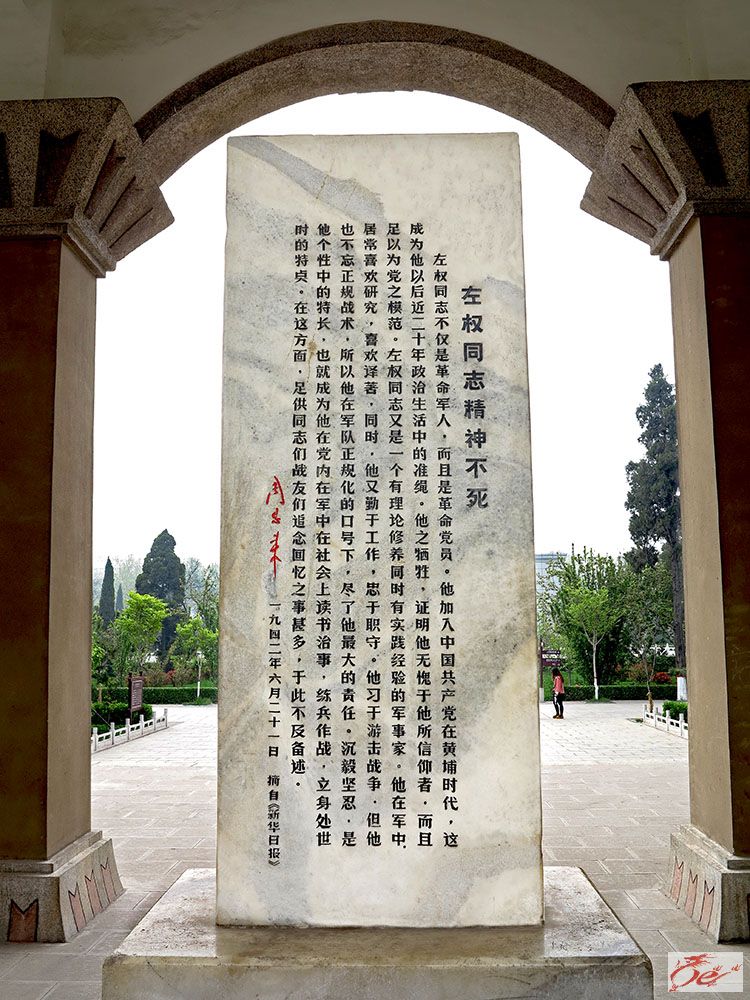 左权同志精神不死
左权同志不仅是革命军人，而且是革命党员。他加入中国共产党在黄埔时代，这
成为他以后近二十年政治生活中的准绳。他之牺牲，证明他无愧于他所信仰者，而且
足以为党之模范。左权同志又是一个有理论修养同时有实践经验的军事家。他在军中，
居常喜欢研究，喜欢译著，同时，他又勤于工作，忠于职守。他习于游击战争，但他
也不忘正规战术，所以他在军队正规化的口号下，尽了他最大的责任。沉毅坚忍，是
他个性中的特长，也就成为他在党内在军中在社会上读书治事，练兵作战，立身处世
时的特贞。在这方面，足供同志们战友们追念回忆之事甚多，于此不及备述。
周恩来
一九四二年六月二十一日 摘自《新华日报》